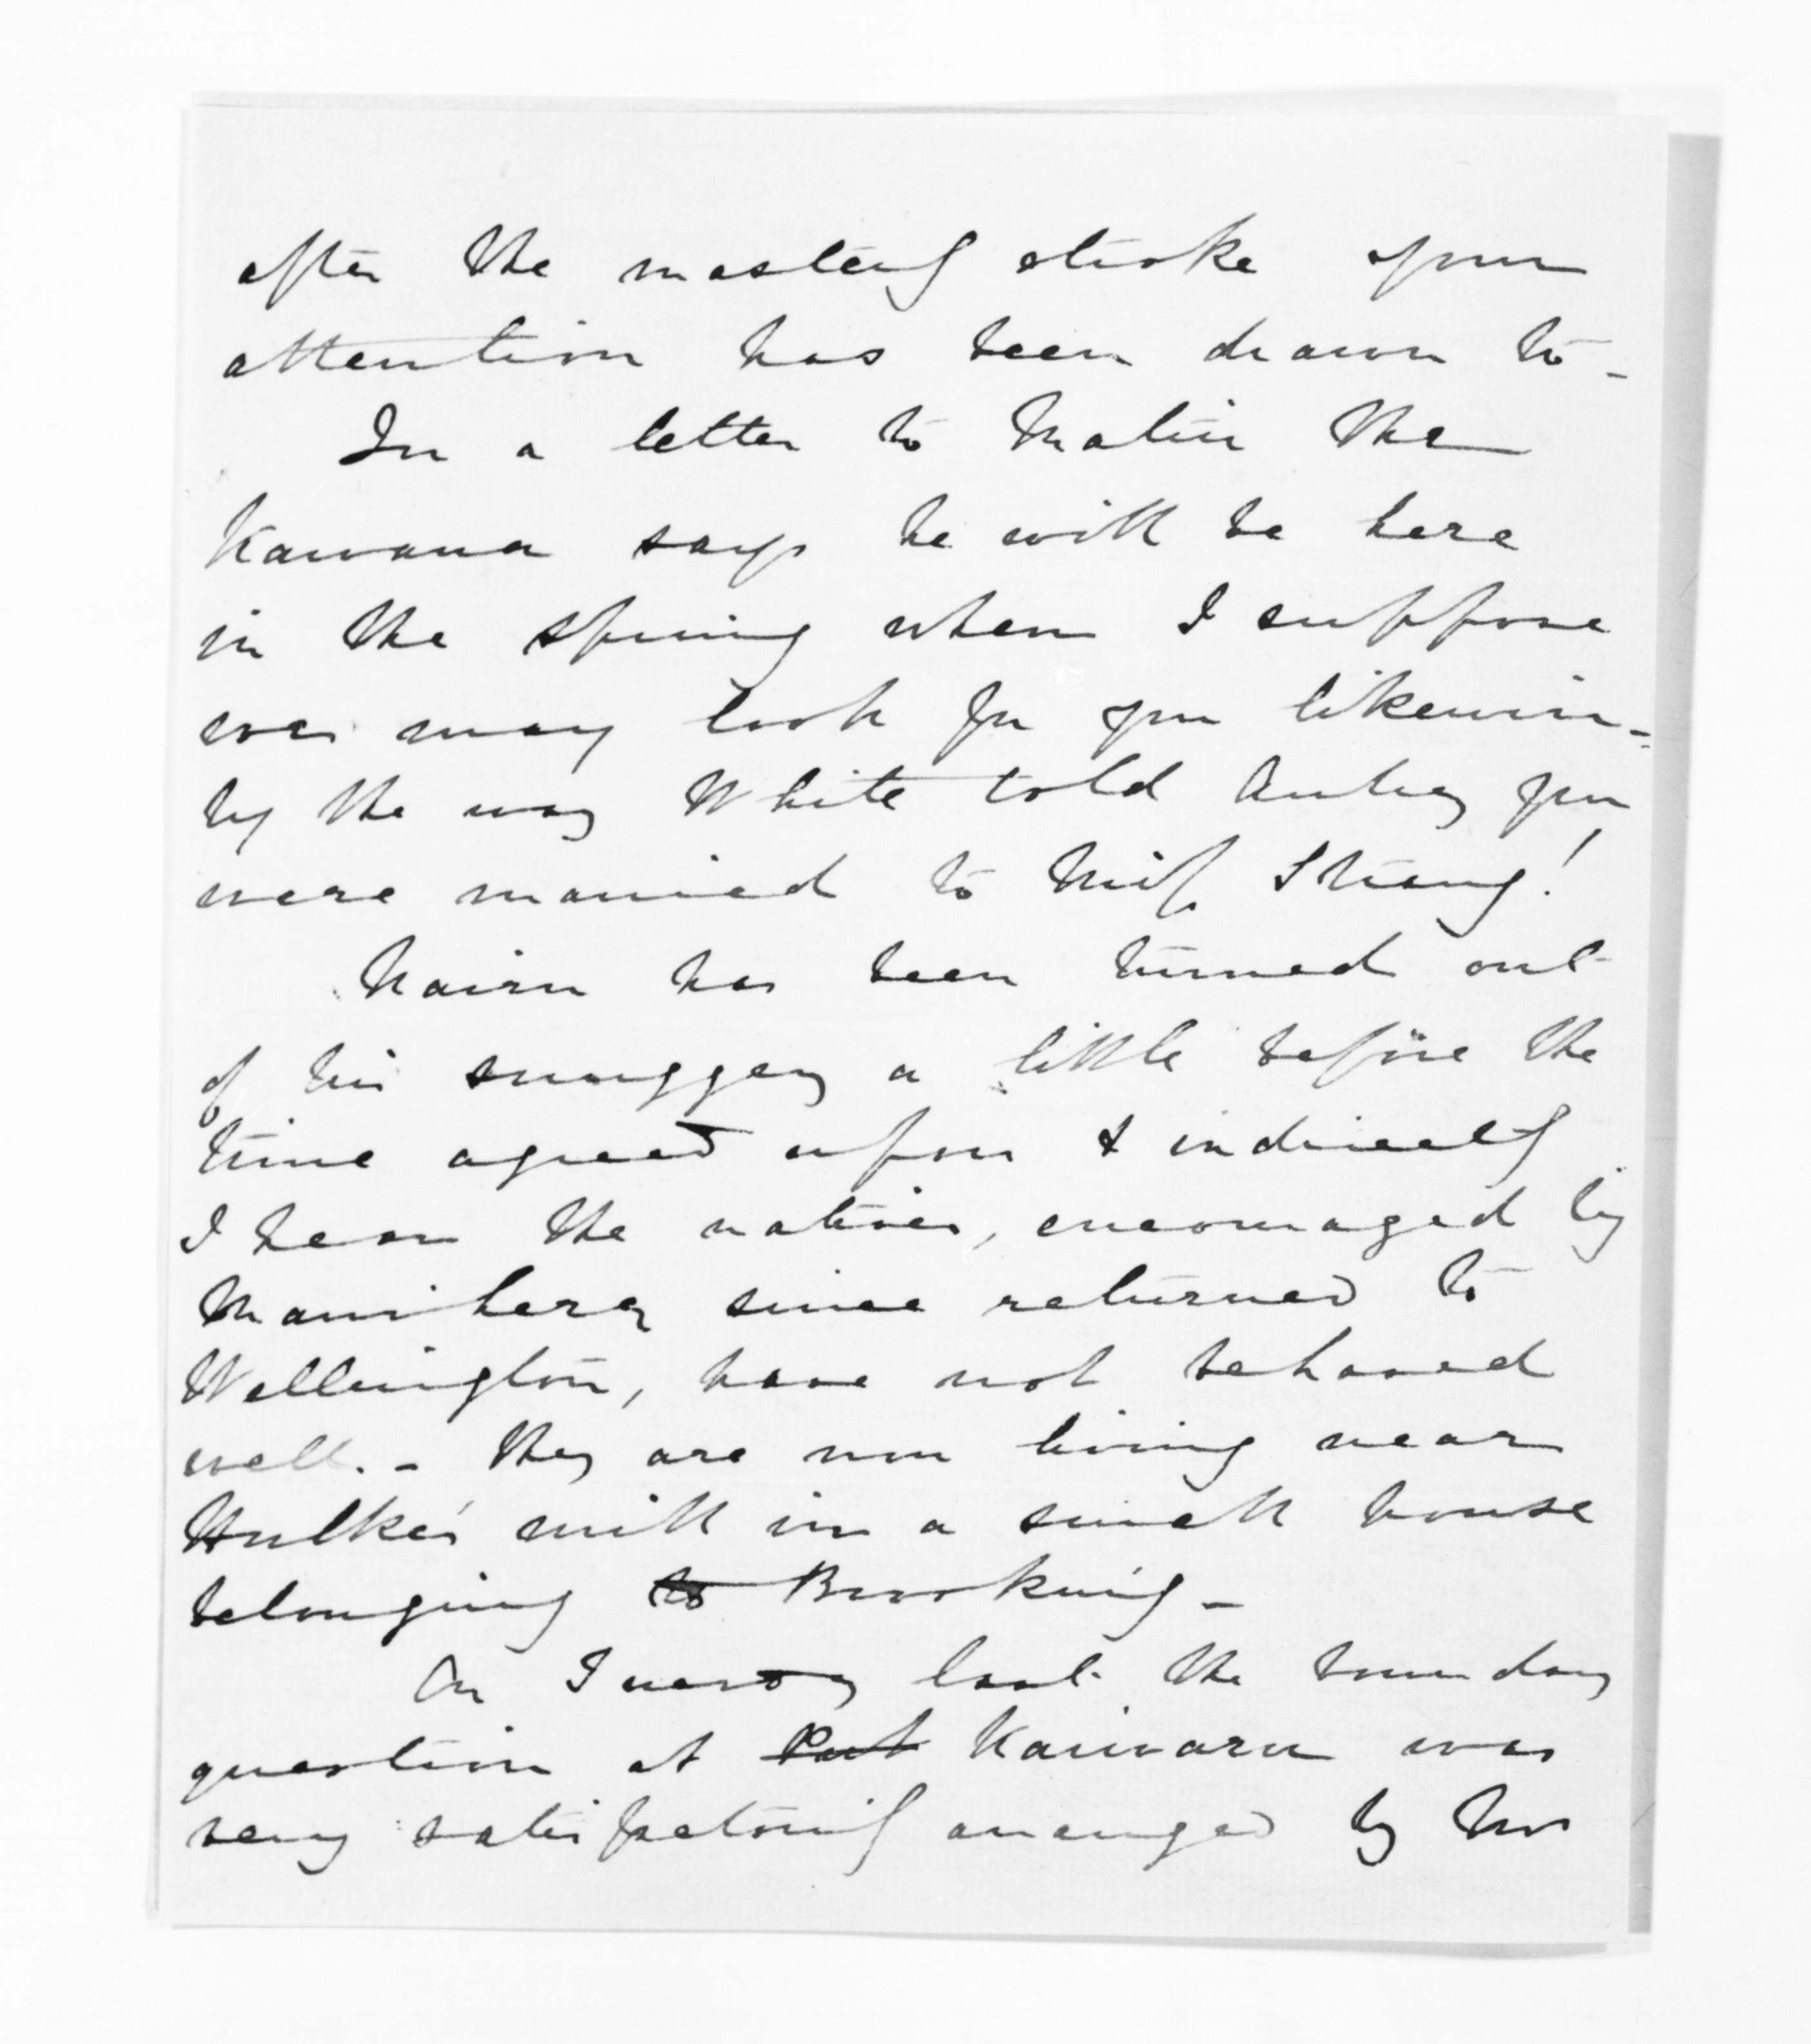 after the masterly stroke your
attention has been drawn to -
In a letter to Matiu the
Kawana says he will be here
in the spring when I suppose
we may look for you likewise -
by the way White told Aubrey you
were married to Miss Strang!
Nairn has been turned out
of his snuggery a little before the
time agreed upon & indirectly
I hear the natives, encouraged by
Manihera since returned to
Wellington, have not behaved
well. - They are now living near
Hulke's mill in a small house
belonging to Brooking -
On Tuesday last the boundary
question at Kaiwaru was
very satisfactorily arranged by